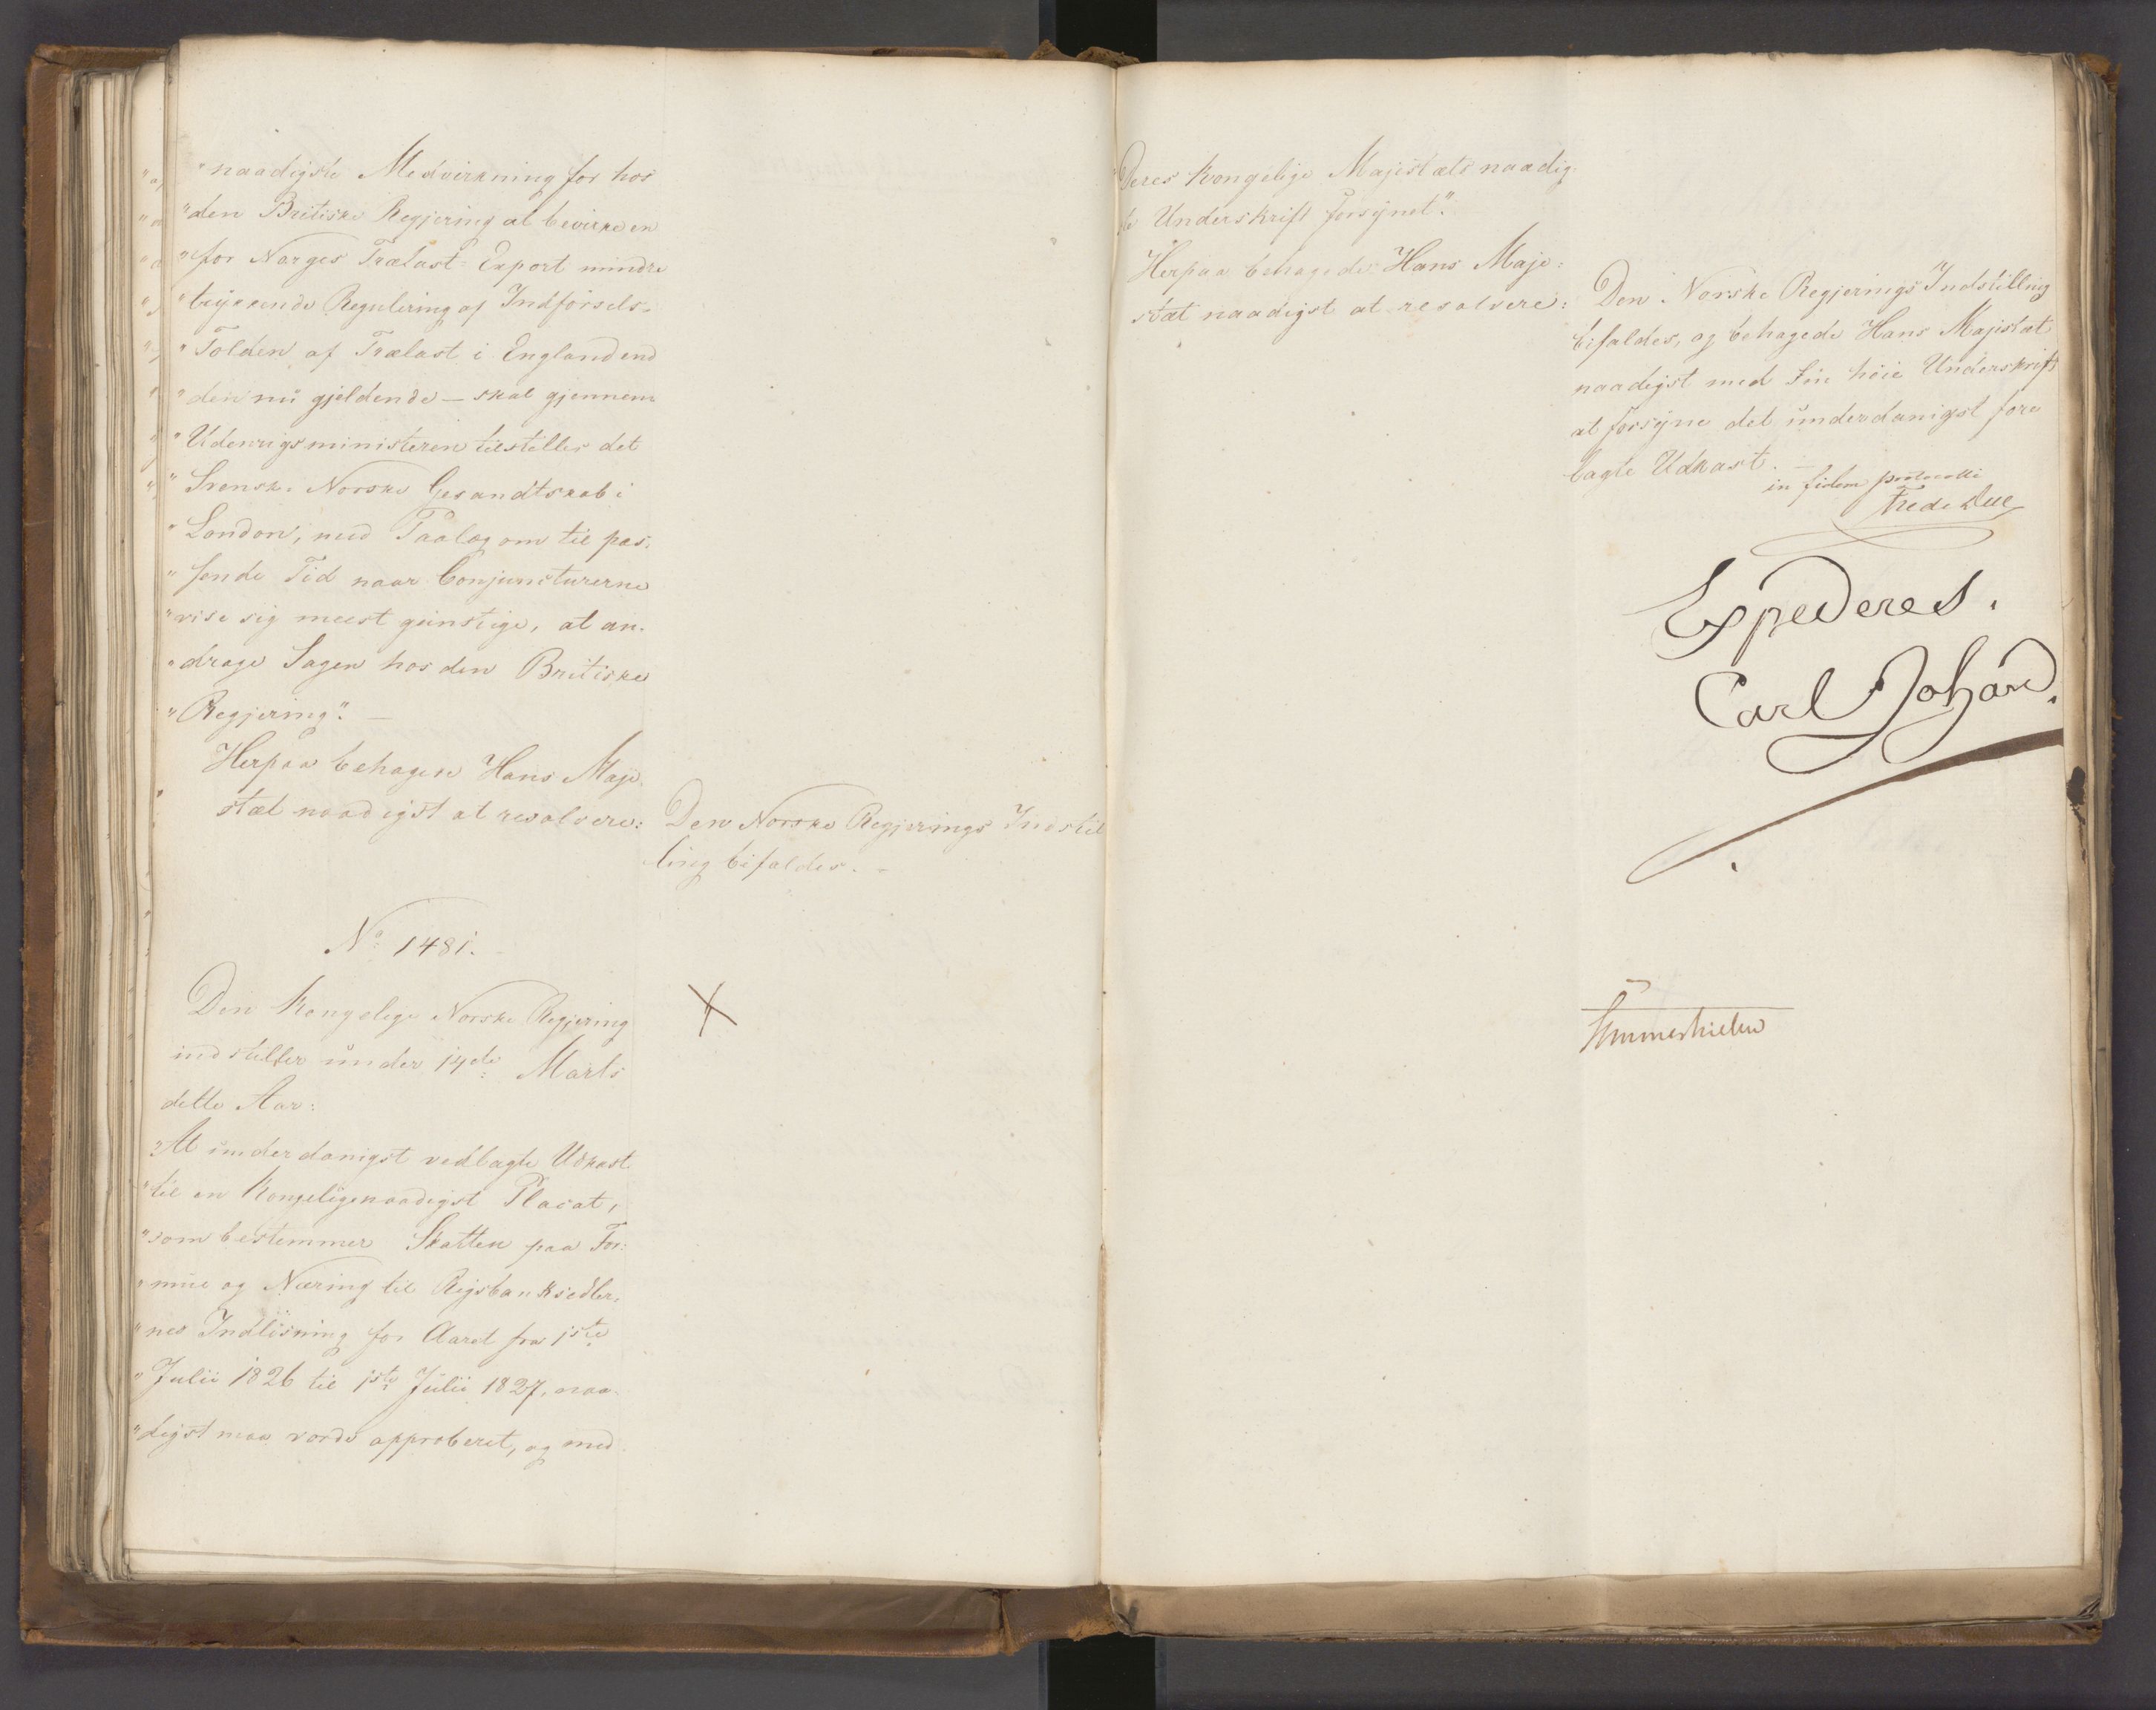 "naadigste Medvirkning for hos
"den Britiske Regjering at bevirke en
"for Norges Trælast-Export mindre
"trykkende Regulering af Indførsels-
"Tolden af Trælast i England end
"den nu gjeldende — skal gjennem
"Udenrigsministeren tilstilles det
"Svensk-Norske Gesandtskab i
"London, med Paalæg om til pas-
"sende Tid naar Conjuncturerne
"vise sig meest gunstige, at an-
"drage Sagen hos den Britiske
"Regjering". —
Herpaa behagede Hans Maje-
stæt naadigst at resolvere:
Den Norske Regjerings Indstil
ling bifaldes. -
No 1481.
Den Kongelige Norske Regjering
indstiller under 14de Marts
dette Aar:
"At underdanigst vedlagte Udkast
"til en Kongelig naadigst Placat,
"som bestemmer Skatten paa For-
"mue og Næring til Rigsbanksedler-
"nes Indløsning for Aaret fra 1ste
"Julii 1826 til 1ste Julii 1827, naa-
"digst maa vorde approberet, og med
X
"Deres Kongelige Majestæts naadig-
ste Underskrift forsynet".
Herpaa behagede Hans Maje-
stæt naadigst at resolvere:
Den Norske Regjerings Indstilling
bifaldes, og behagede Hans Majestæt
naadigst med Sin høie Underskrift
at forsyne det underdanigst fore
lagte Udkast. —
in fidem protocolli
Fredr Due
Expederes.
Carl Johan.